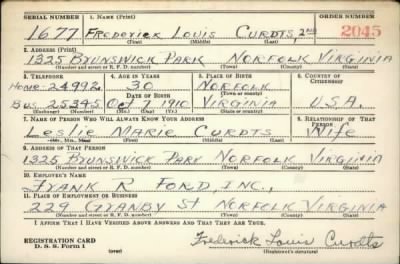 SERIAL NUMBER 1. NAME (Print) ORDER NUMBER
1677 FREDERICK LOUIS CURDTS, 2ND 2045
(First) (Middle) (Last)
2. ADDRESS (Print)
1325 BRUNSWICK PARK NORFOLK VIRGINIA
(Number and street or R. F. D. number) (Town) (County) (State)
3. TELEPHONE 4. AGE IN YEARS 5. PLACE OF BIRTH 6. COUNTRY OF CITIZENSHIP
Home: 24992 30 NORFOLK
DATE OF BIRTH (Town or county)
Bus. 25345 Oct 7 1910 VIRGINIA U.S.A.
(Exchange) (Number) (Mo.) (Day) (Yr.) (State or country)
7. NAME OF PERSON WHO WILL ALWAYS KNOW YOUR ADDRESS 8. RELATIONSHIP OF THAT PERSON
LESLIE MARIE CURDTS Wife
(Mr., Mrs., Miss) (First) (Middle) (Last)
9. ADDRESS OF THAT PERSON
1325 BRUNSWICK PARK NORFOLK VIRGINIA
(Number and street or R. F. D. number) (Town) (County) (State)
10. EMPLOYER'S NAME
FRANK R FORD, INC.,
11. PLACE OF EMPLOYMENT OR BUSINESS
229 GRANBY ST NORFOLK VIRGINIA
(Number and street or R. F. D. number) (Town) (County) (State)
I AFFIRM THAT I HAVE VERIFIED ABOVE ANSWERS AND THAT THEY ARE TRUE.
REGISTRATION CARD
D. S. S. Form 1 (over) Frederick Louis Curdts
(Registrant's signature)